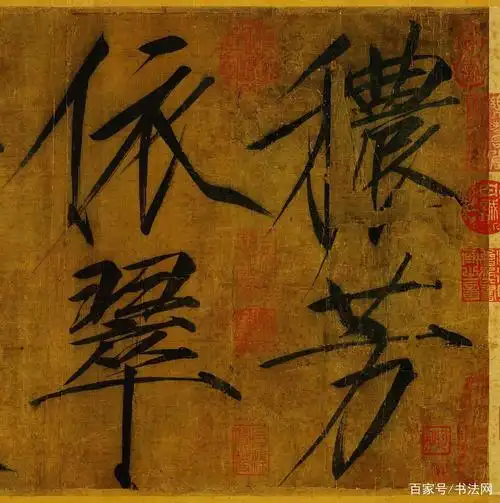 穠芳
依翠
百家号/书法网